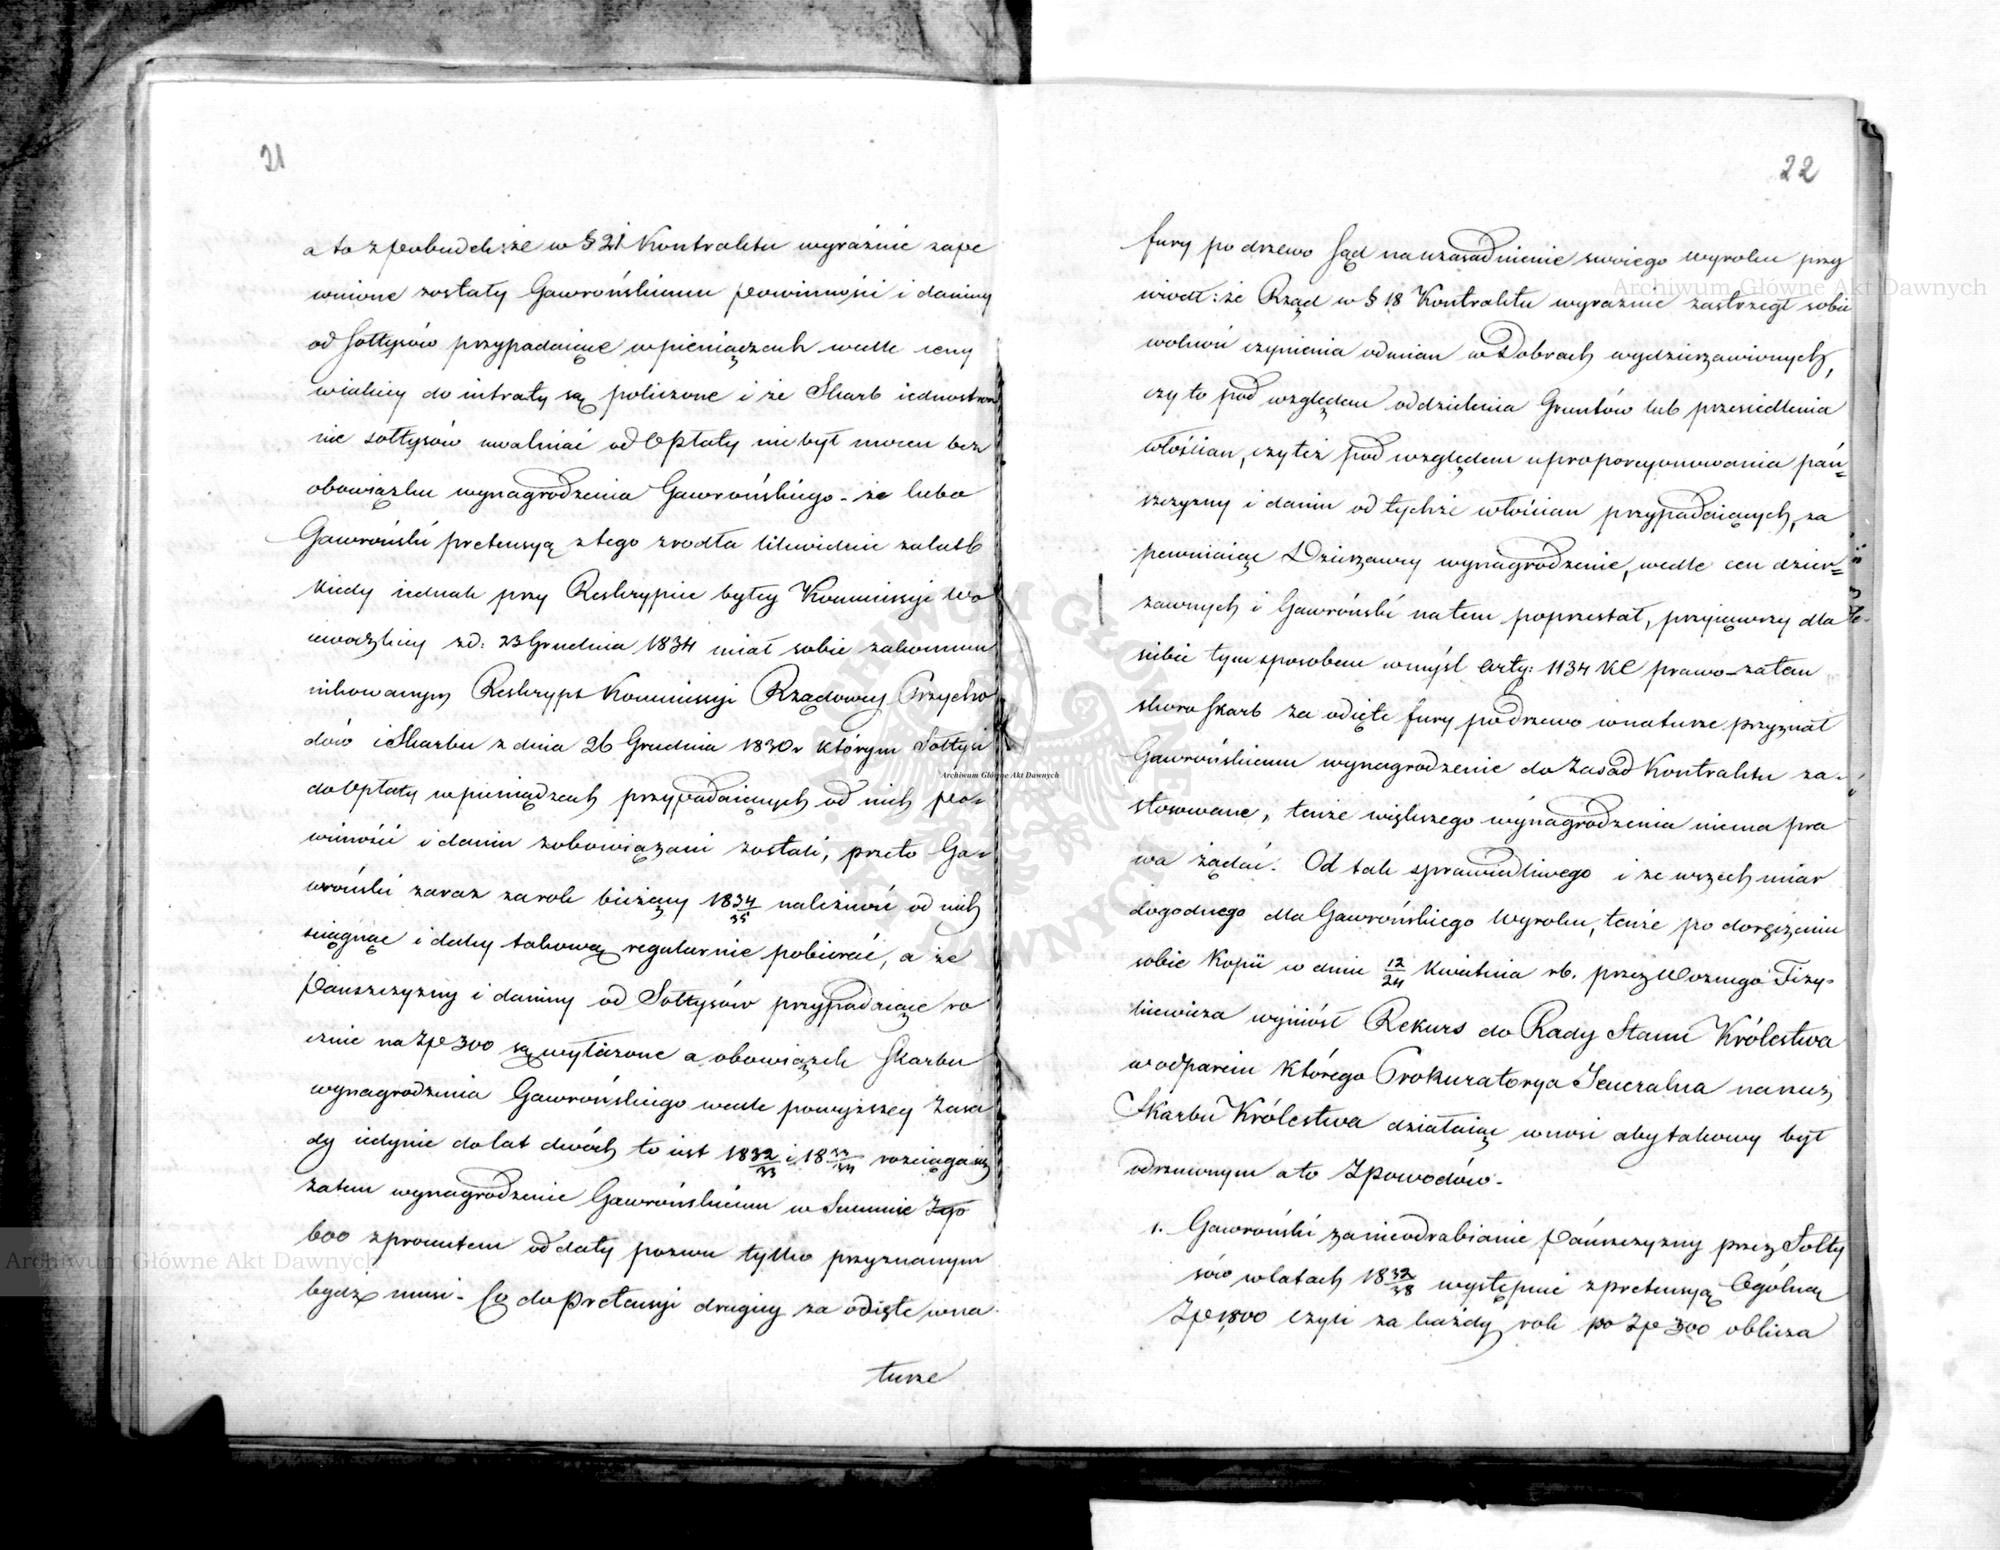 21
a to z pobudek: że w § 21 Kontraktu wyraźnie zape
wnione zostały Gawrońskiemu powinności i daniny
od Sołtysów przypadaiące w pieniądzach wedle ceny
wieleey do intraty są policzone i że Skarb iednostron
nie sołtysów uwalniać od opłaty nie był mocen bez
obowiązku wynagrodzenia Gawrońskiego - że lubo
Gawroński pretensyą z tego zrodła likwiduie
kiedy iednak przy Reskrypcie byłey Kommissyi Wo
iewodzkiey z d: 23 Grudnia 1834 miał sobie zakommu
nikowanym Reskrypt Kommissyi Rządowey Przycho
dów i Skarbu z dnia 26 Grudnia 1830 r którym Sołtysi
do opłaty w pieniądzach przypadaiących od nich po-
winności i danin zobowiązani zostali, przeto Ga-
wroński zaraz za rok bieżący 1834/35 należność od nich
sciągnąć i daley takową regularnie pobierać, a że
Pańszczyzny i daniny od Sołtysów przypadaiące ro
cznie na Złp 300 są wytażone a obowiązek Skarbu
wynagrodzenia Gawrońskiego wedle powyższey Zasa
dy iedynie do lat dwóch to iest 1832/33 i 1833/34 rozciąga się
zatem wynagrodzenie Gawrońskiemu w Summie Złp
600 z procentem od daty pozwu tylko przyznanym
bydź musi - Co do Pretensyi drugiey za odięte w na
turze
22
fury po drzewo Sąd na uzasadnienie swoiego wyroku przy
wiódł: że Rząd w § 18 Kontraktu wyraźnie zastrzegł sobie
wolność czynienia odmian w Dobrach wydzierzawionych,
czy to pod względem oddzielenia Gruntów lub przesiedlenia
włościan, czy też pod względem uproporcyonowania pań-
szczyzny i danin od tychże włościan przypadaiących, za
pewniaiąc Dzierżawcy wynagrodzenie, wedle cen dzier-
zawnych i Gawroński na tem poprzestał, przyiąwszy dla
siebie tym sposobem w myśl Arty: 1134 KC prawo - zatem
skoro Skarb za odięte fury po drzewo w naturze przyznał
Gawrońskiemu wynagrodzenie do Zasad Kontraktu za-
stosowane, tenże większego wynagrodzenia niema pra
wa żądać. Od tak sprawiedliwego i ze wszech miar
dogodnego dla Gawrońskiego Wyroku, tenże po doręczeniu
sobie Kopii w dniu 12/24 Kwietnia rb. przez Woznego Fizy-
kiewicza wyniósł Rekurs do Rady Stanu Królestwa
w odparciu którego Prokuratorya Jeneralna na rzecz
Skarbu Królestwa działaiąc wnosi aby takowy był
odrzuconym a to z powodów -
1. Gawroński za nieodrabianie Pańszczyzny przez Sołty
sów w latach 1832/38 występuie z pretensyą Ogólną
Złp 1,800 czyli za każdy rok po Złp 300 oblicza
Archiwum Główne Akt Dawnych
Archiwum Główne Akt Dawnych
Archiwum Główne Akt Dawnych